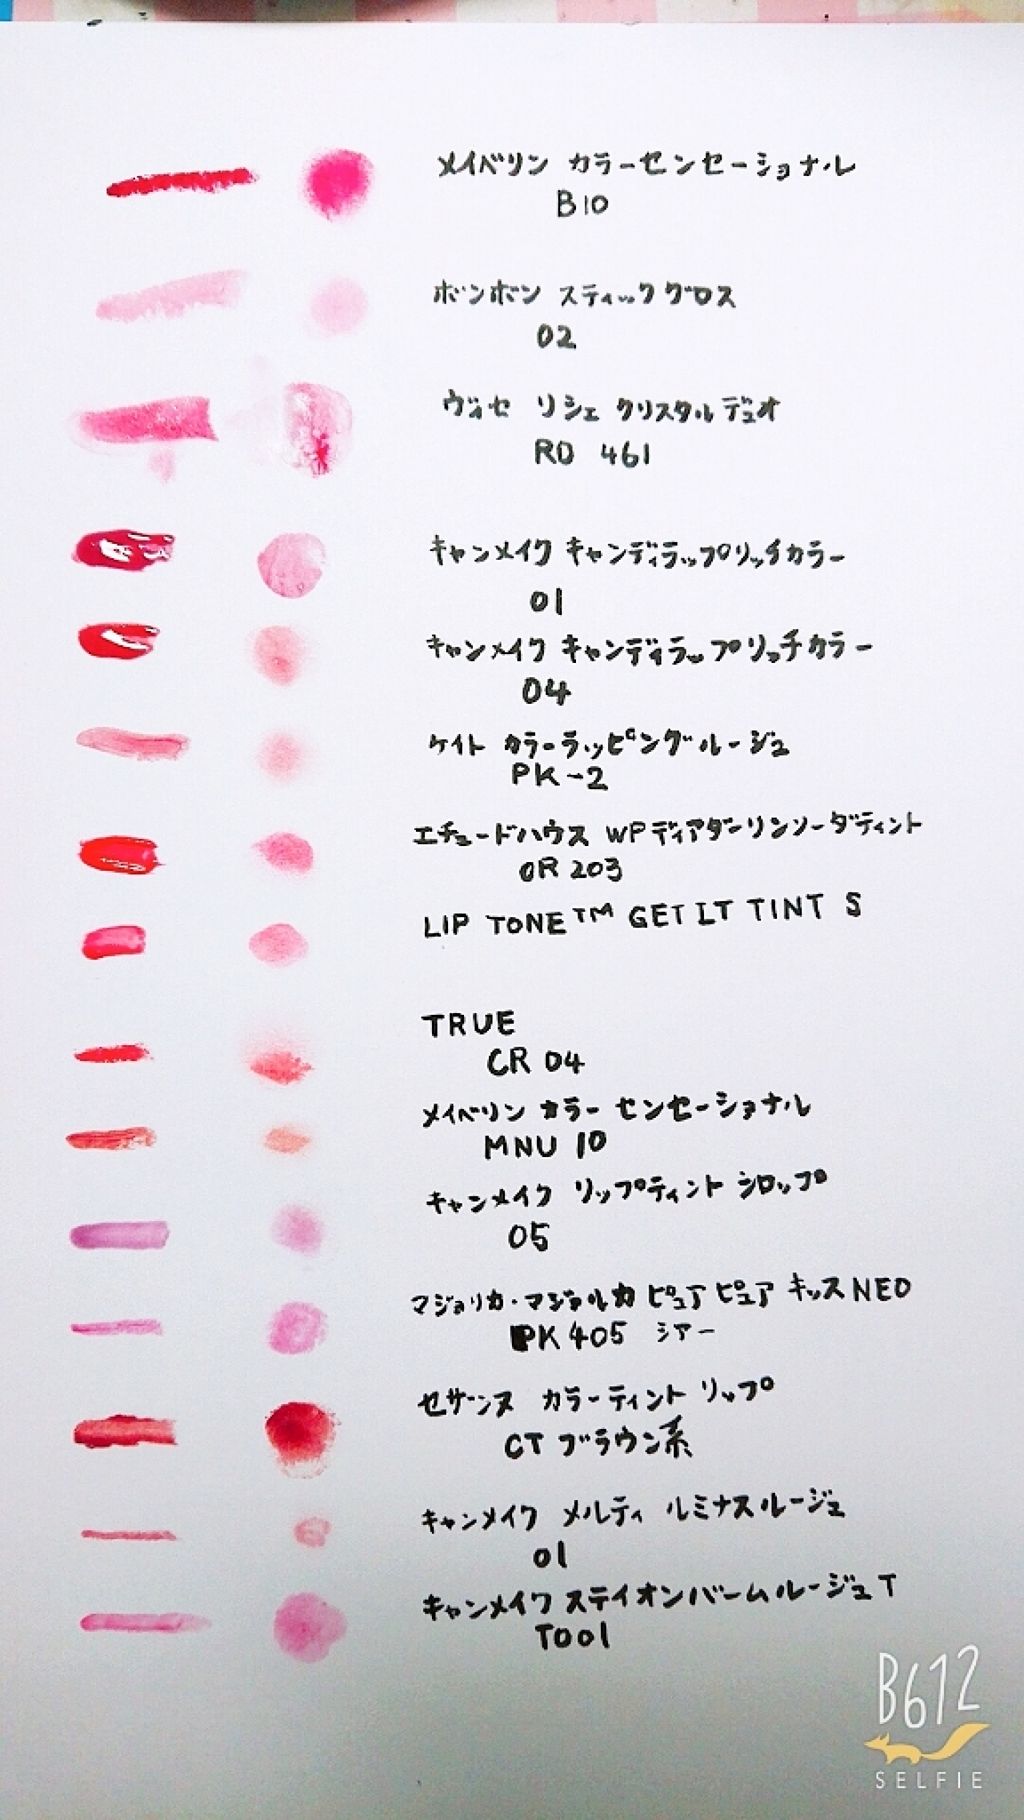 メイベリン カラーセンセーショナル
B10
ボンボン スティックグロス
02
ヴィセ リシェ クリスタルデュオ
RD 461
キャンメイク キャンディラップリッチカラー
01
キャンメイク キャンディラップリッチカラー
04
ケイト カラーラッピングルージュ
PK-2
エチュードハウス WPディアダーリンソーダティント
OR 203
LIP TONE™ GET IT TINT S
TRUE
CR 04
メイベリン カラー センセーショナル
MNU 10
キャンメイク リップティント シロップ
05
マジョリカ・マジョルカ ピュア ピュア キッスNEO
PK405 シアー
セザンヌ カラーティント リップ
CT ブラウン系
キャンメイク メルティ ルミナスルージュ
01
キャンメイク ステイオンバームルージュ T
T001
B612
SELFIE